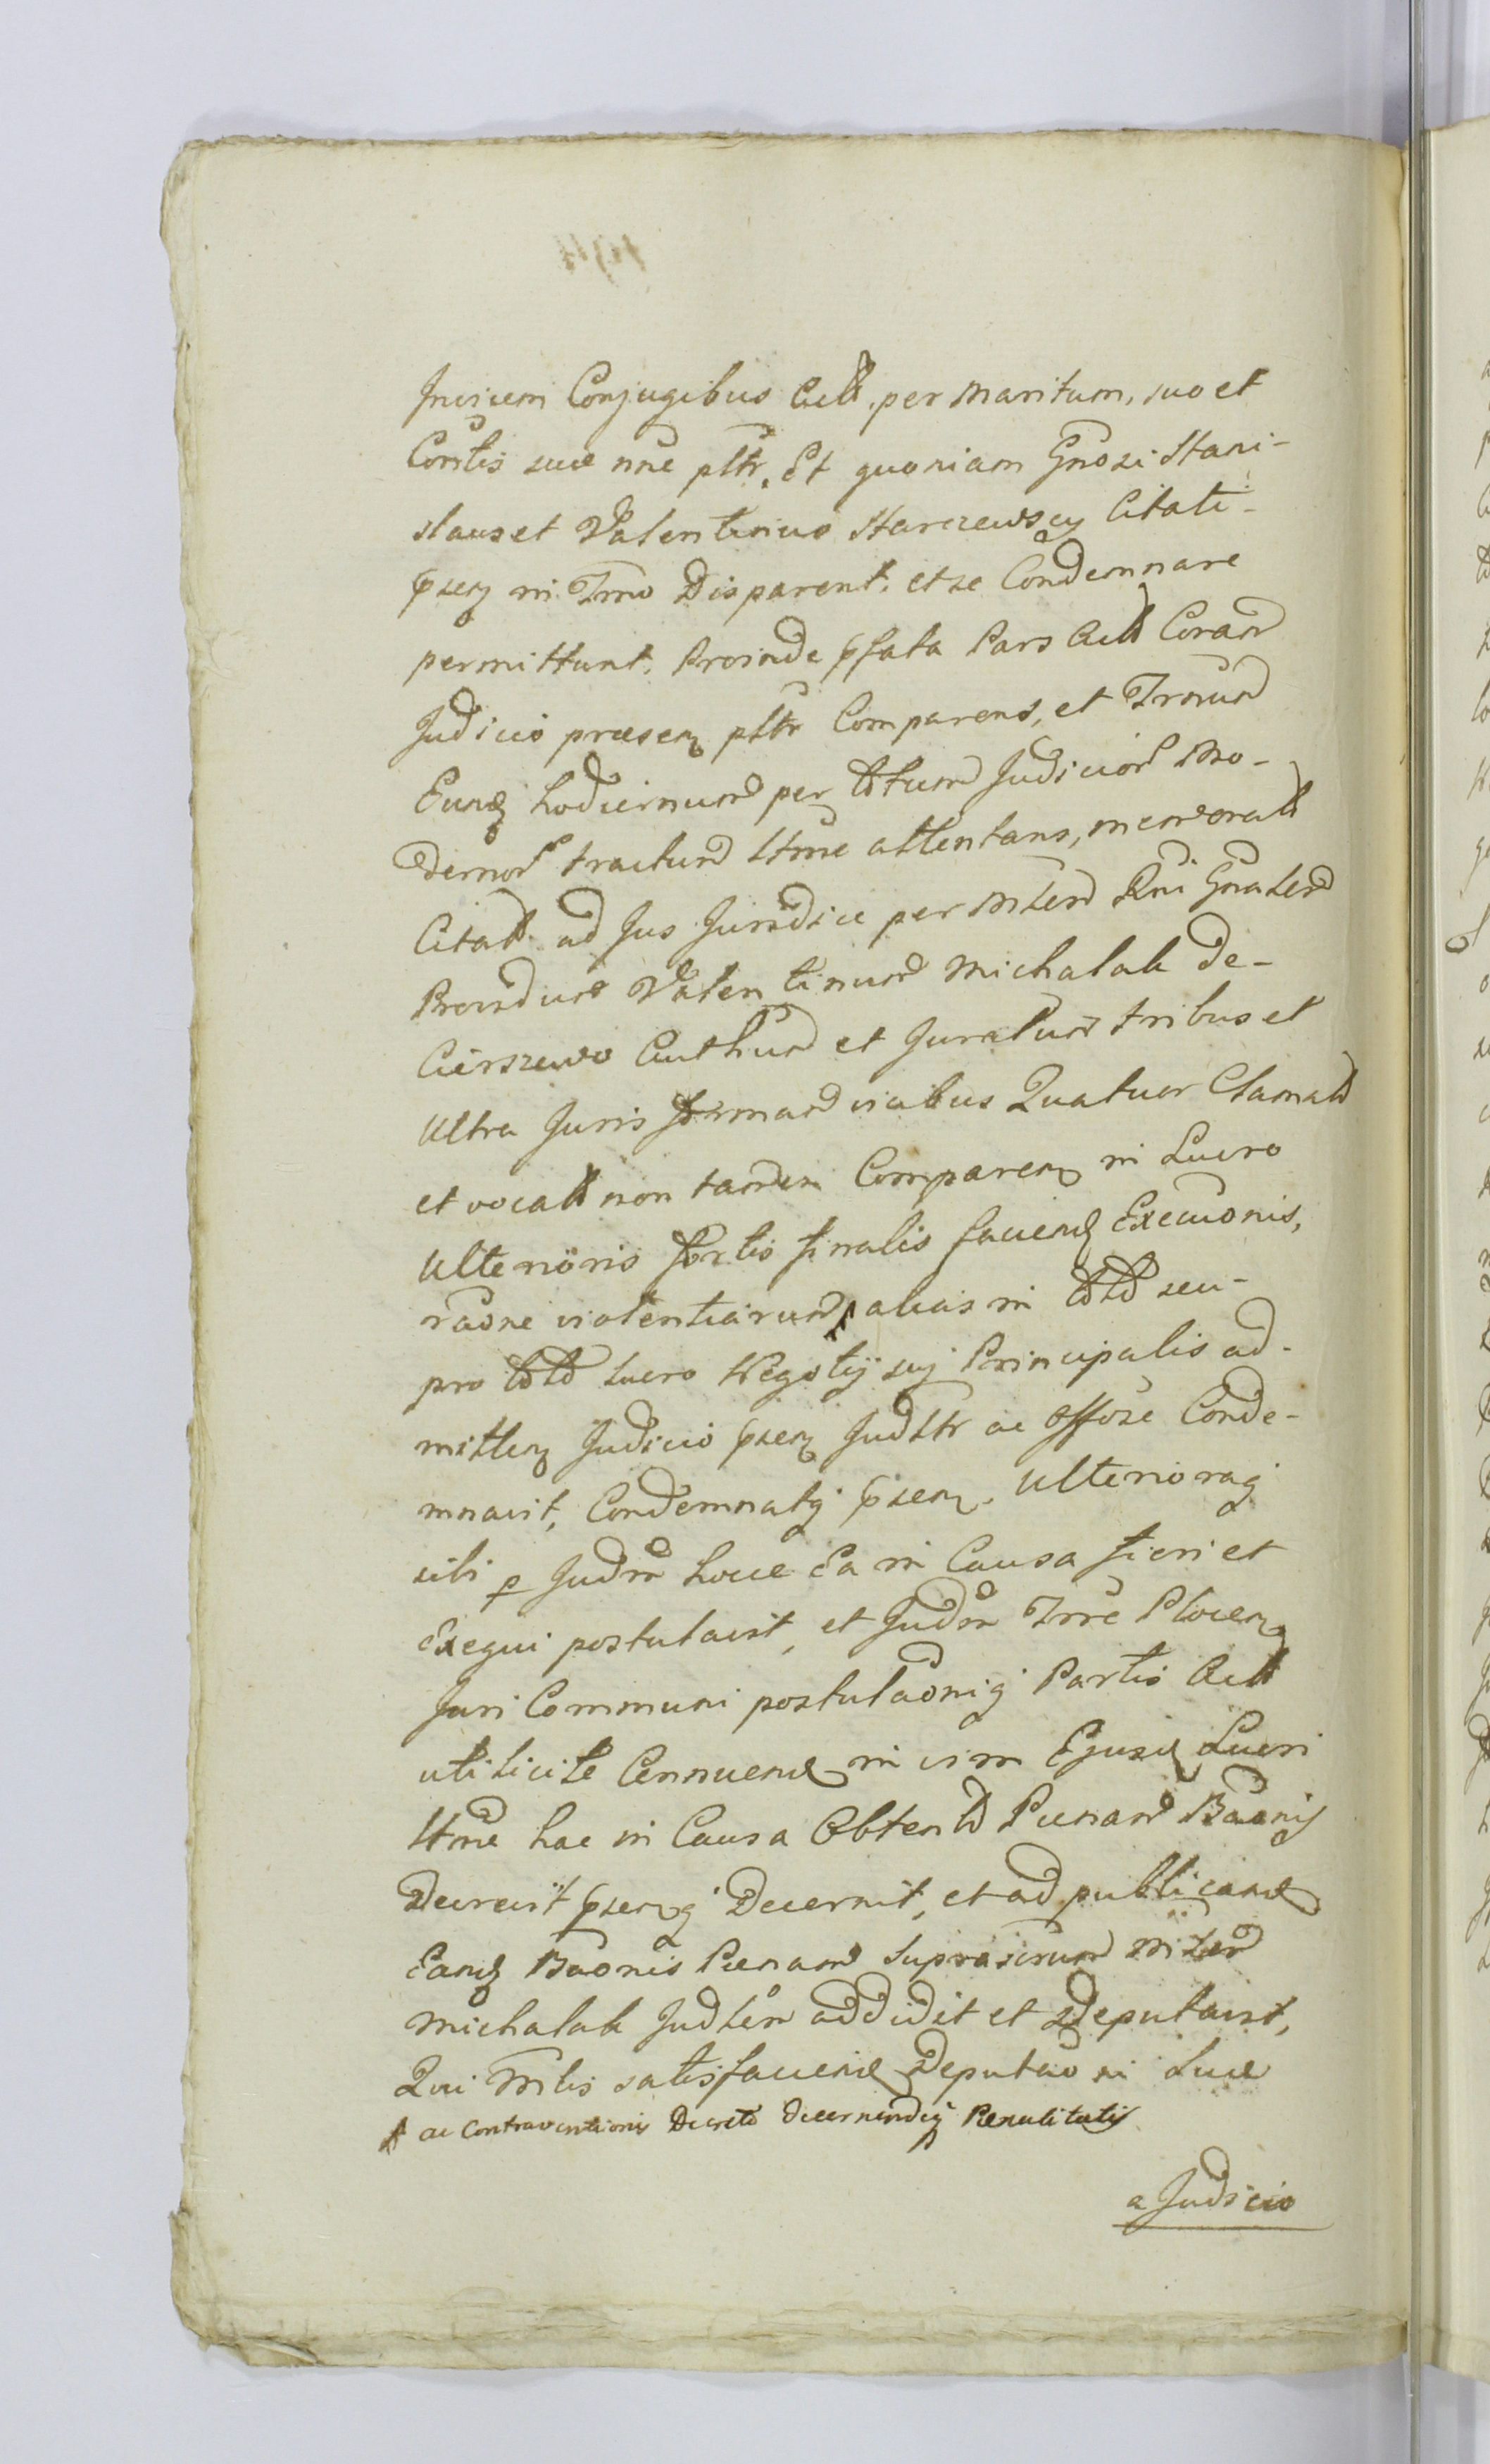 Invicem Conjugibus Actt. per Maritum, suo et
Contis suae nne pltr. Et quoniam Gnosi Stani-
slaus et Valentinus Starczewscy Citati
psen in Trno Disparent. et se Condemnare
permittunt. Proinde psata Pars Actt Coram
Judicio praesen pltr Comparens, et Trnum
Eund hodiernum per totum Judicior Mo-
dernor tractum Ittme attentans, memoratt
Citatt ad Jus Juridice per Mtem Rni Gnalem
Providum Valentinum Michalak de
Cierszewo Authum et Juratum tribus et
Ultra Juris formam vicibus Quatuor Clamatt
et vocatt non tamen Comparen in Lucro
Ulterioris sortis finalis faciend Execuonis,
raone violentiarum alias in toto seu
pro toto lucro Negotij sui Principalis ad
mitten Judicio psen Judttr ac Offose Conde-
mnavit, Condemnatq psen. Ulterioraq
sibi p Judm hocce Ea in Causa fieri et
Exequi postulavit, et Judm Trre Plocen
Juri Communi postulaoniq Partis Actt
uti licite Annuend in vim Ejusd Lucri
Ittme hac in Causa Obtento Poenam Baonis
Decrevit psenq Decernit, et ad publicand
Eand Baonis Poenam suprascrum Mtem
Michalak Judtem addidit et Deputavit,
Qui Mtlis satisfaciend Deputao ni suae
ac Contraventionis Decreto decernendiq Poenalitatis
a Judicio